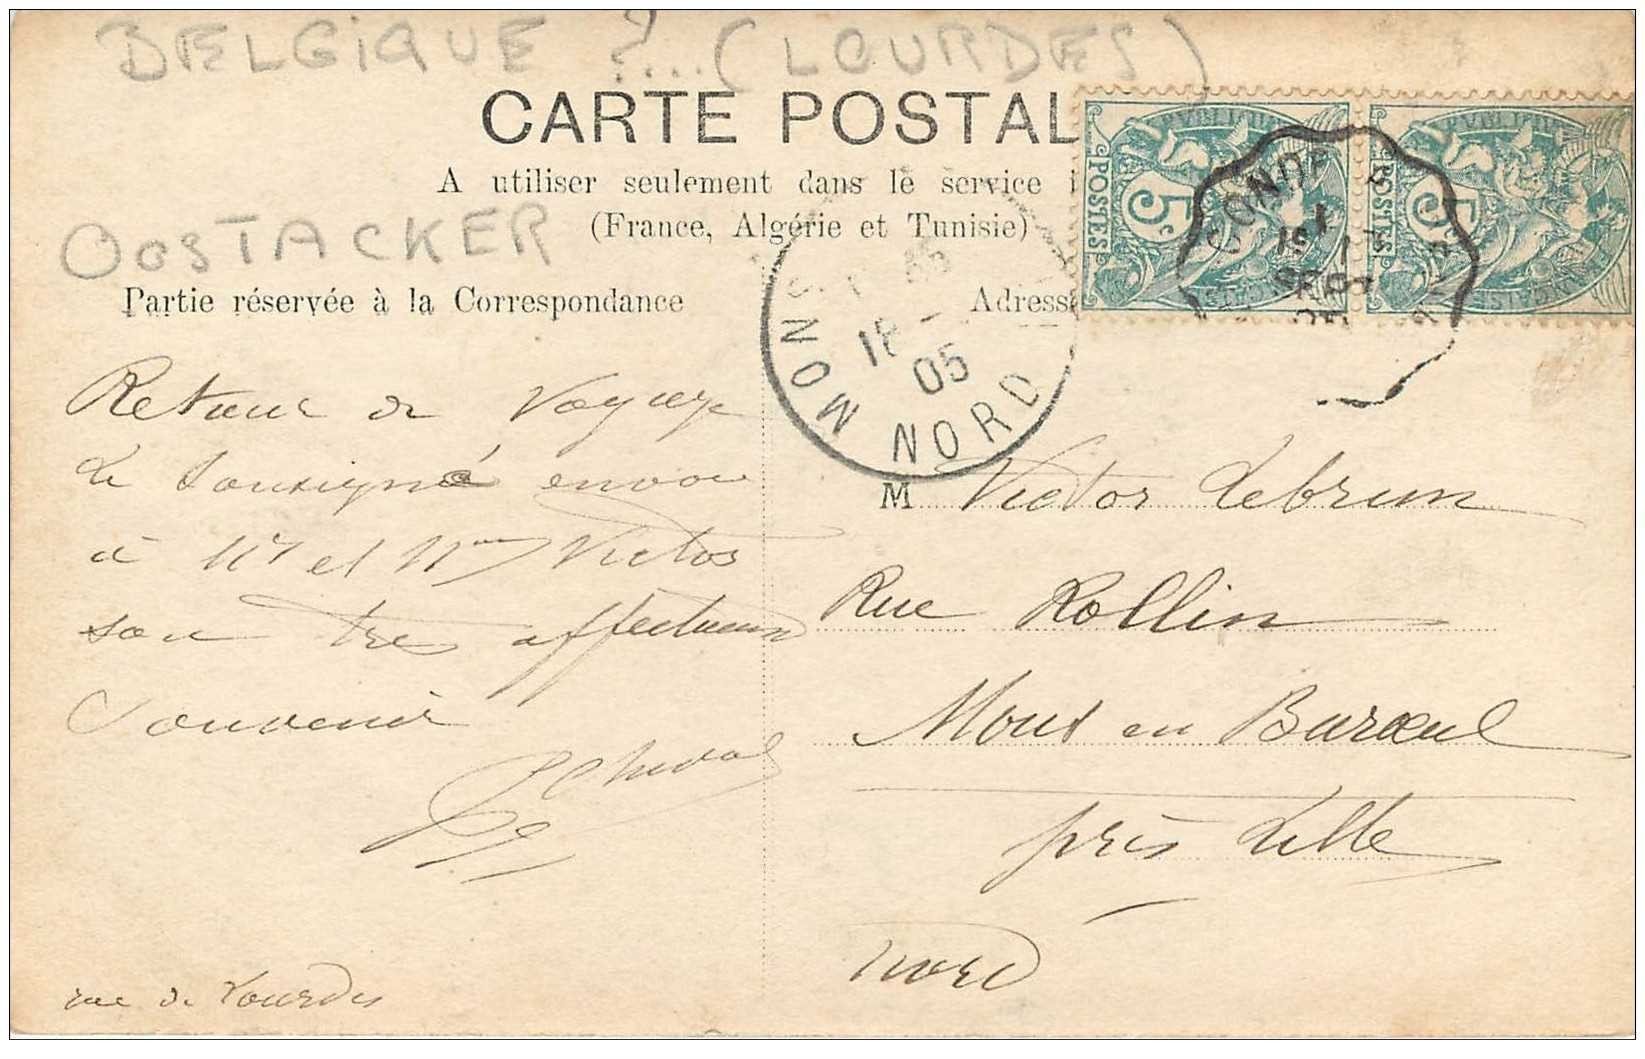 BELGIQUE ?...(LOURDES)
CARTE POSTAL
A utiliser seulement dans le service
(France, Algérie et Tunisie)
OOSTACKER
Partie réservée à la Correspondance
Adresse
POSTES 5
POSTES 5
CONDÉ
MONS
18 -
05
NORD
Retour de Voyage
Le Soussigné envoie
à Mr et Mme Victor
son très affectueux
Souvenir
rue de Lourdes
M Victor Lebrun
Rue Rollin
Mons en Barœul
près Lille
Nord